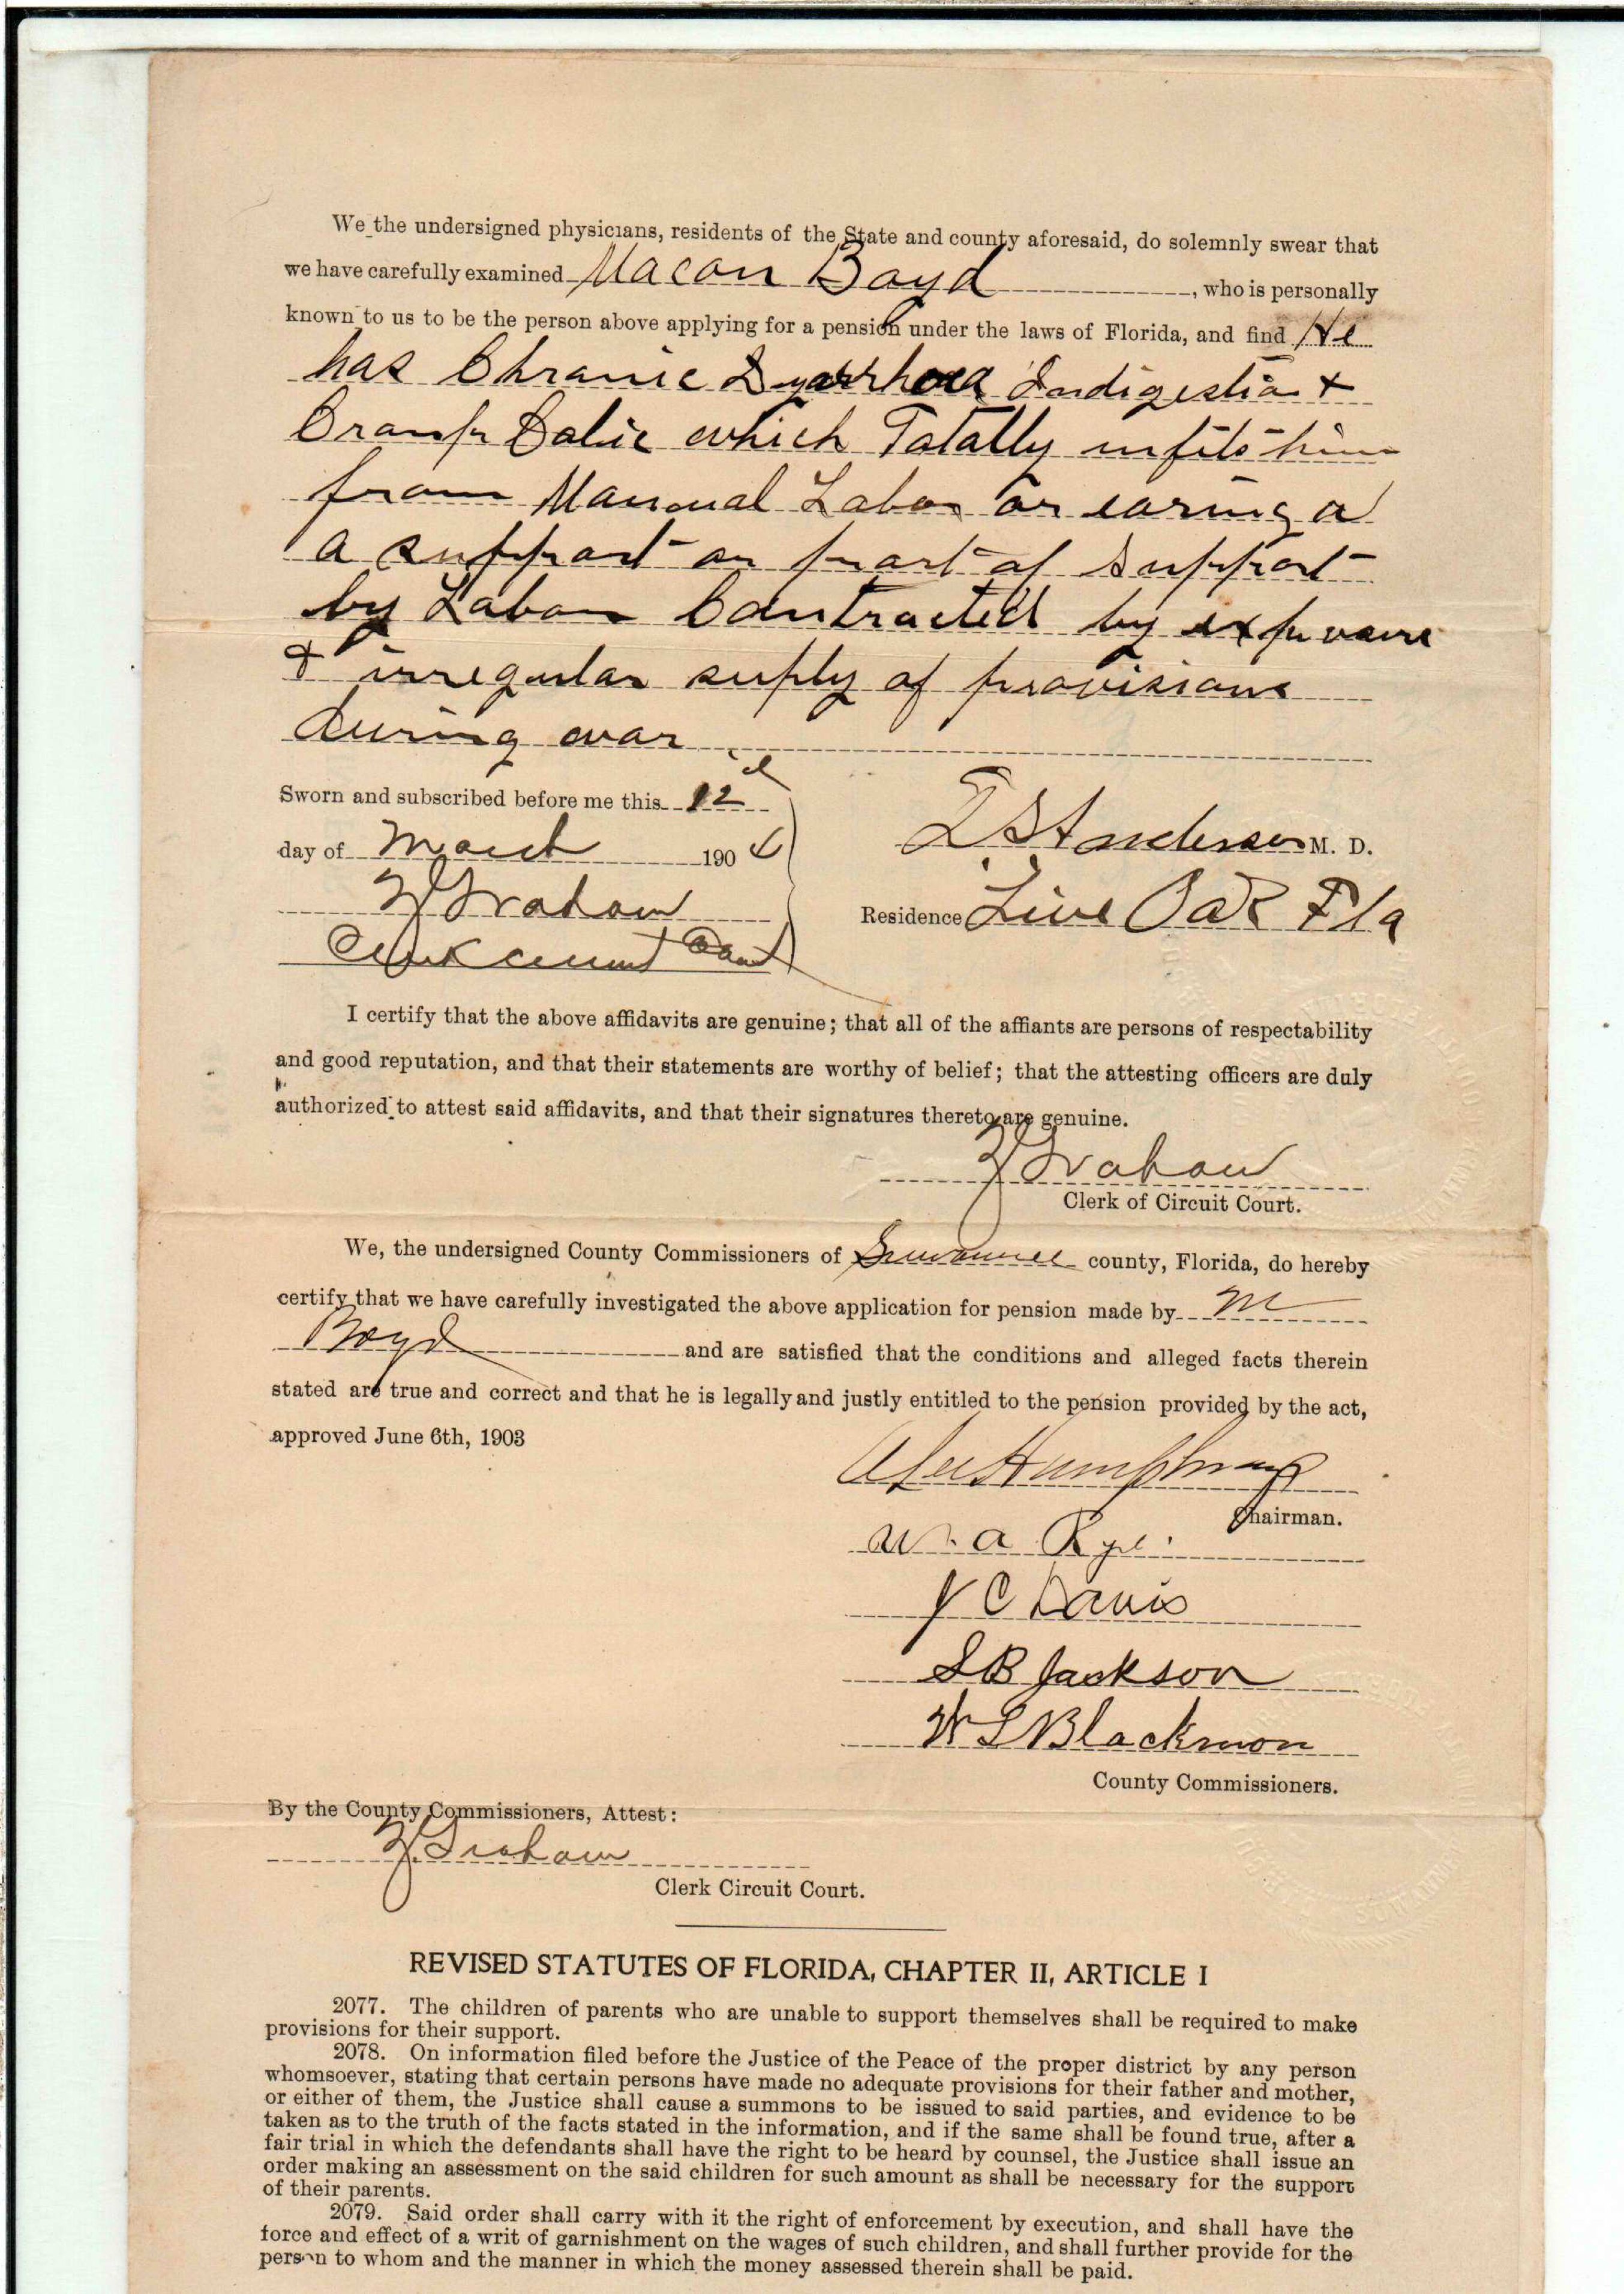 We the undersigned physicians, residents of the State and county aforesaid, do solemnly swear that
we have carefully examined Macon Boyd, who is personally
known to us to be the person above applying for a pension under the laws of Florida, and find He
has Chronic Dyarrhoea Indigestion &
Cramp Colic which Totally unfits him
from Manual Labor or earing a
a support or part of support
by Labor Contracted by exposure
& irregular suply of provisions
during war
Sworn and subscribed before me this 12
day of March 190
Graham
Clerk Circuit Court
T S Anderson M. D.
Residence Live Oak Fla
I certify that the above affidavits are genuine; that all of the affiants are persons of respectability
and good reputation, and that their statements are worthy of belief; that the attesting officers are duly
authorized to attest said affidavits, and that their signatures thereto are genuine.
Graham
Clerk of Circuit Court.
We, the undersigned County Commissioners of Suwannee county, Florida, do hereby
certify that we have carefully investigated the above application for pension made by M
Boyd and are satisfied that the conditions and alleged facts therein
stated are true and correct and that he is legally and justly entitled to the pension provided by the act,
approved June 6th, 1903
Humphreys
Chairman.
W. A Rye.
J C Davis
S B Jackson
W L Blackmon
County Commissioners.
By the County Commissioners, Attest:
Graham
Clerk Circuit Court.
REVISED STATUTES OF FLORIDA, CHAPTER II, ARTICLE I
2077. The children of parents who are unable to support themselves shall be required to make
provisions for their support.
2078. On information filed before the Justice of the Peace of the proper district by any person
whomsoever, stating that certain persons have made no adequate provisions for their father and mother,
or either of them, the Justice shall cause a summons to be issued to said parties, and evidence to be
taken as to the truth of the facts stated in the information, and if the same shall be found true, after a
fair trial in which the defendants shall have the right to be heard by counsel, the Justice shall issue an
order making an assessment on the said children for such amount as shall be necessary for the support
of their parents.
2079. Said order shall carry with it the right of enforcement by execution, and shall have the
force and effect of a writ of garnishment on the wages of such children, and shall further provide for the
person to whom and the manner in which the money assessed therein shall be paid.